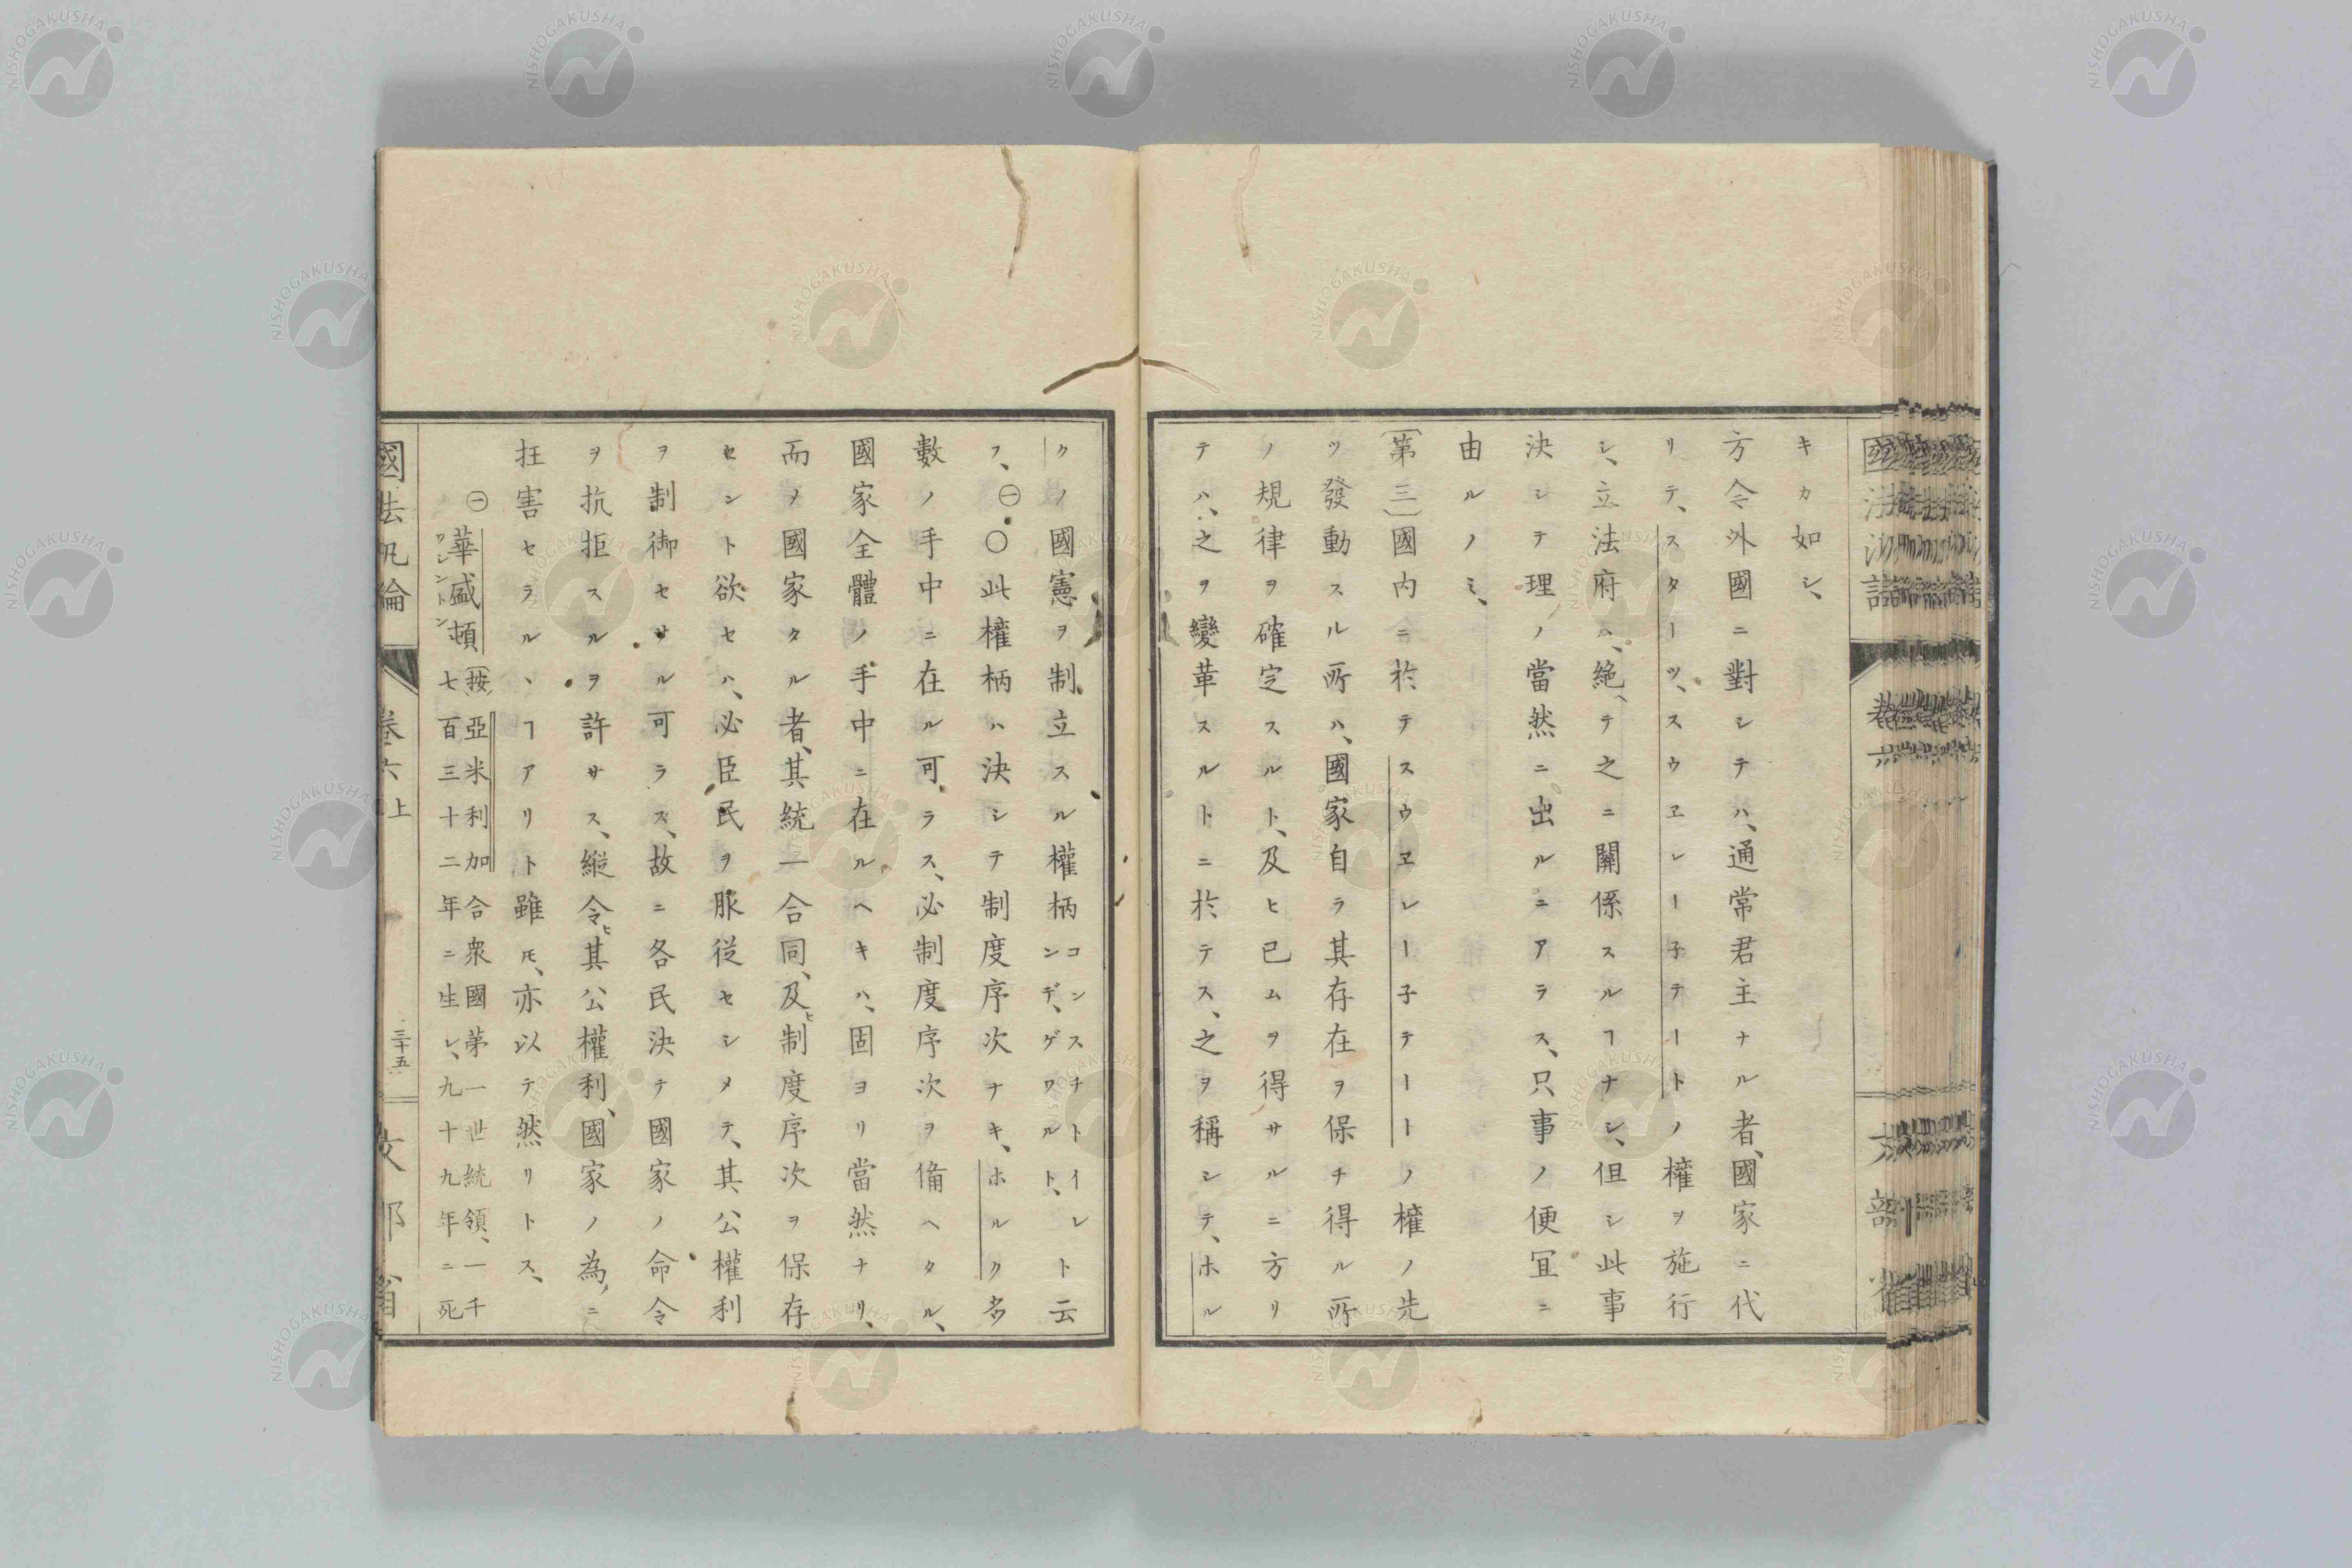 キカ如シ、
方今外國ニ對シテハ、通常君主ナル者、國家ニ代
リテ、スターツ、スウヱレー子テートノ權ヲ施行
シ、立法府ハ、絶テ之ニ關係スルヿナシ、但シ此事
決シテ理ノ當然ニ出ルニアラス、只事ノ便冝ニ
由ルノミ、
〔第三〕國内ニ於テスウヱレー子テートノ權ノ先
ツ發動スル所ハ、國家自ラ其存在ヲ保チ得ル所
ノ規律ヲ確定スルト、及ヒ已ムヲ得サルニ方リ
テハ、之ヲ變革スルトニ於テス、之ヲ稱シテ、ホル
クノ國憲ヲ制立スル權柄コンスチトイレンデ、ゲワルト、ト云
フ、㊀〇此權柄ハ決シテ制度序次ナキ、ホルク多
數ノ手中ニ在ル可ラス、必制度序次ヲ備ヘタル、
國家全體ノ手中ニ在ルヘキハ、固ヨリ當然ナリ、
而メ國家タル者、其統一合同、及ヒ制度序次ヲ保存
センﾄ欲セハ、必臣民ヲ服從セシメテ、其公權利
ヲ制御セサル可ラス、故ニ各民決テ國家ノ命令
ヲ抗拒スルヲ許サス、縱令ヒ其公權利、國家ノ為ニ
抂害セラルヽヿアリト雖モ、亦以テ然リトス、
㊀華盛頓ワシントン〔按亞米利加合衆國第一世統領、一千
七百三十二年ニ生レ、九十九年ニ死
國法汎論
卷六上
三十五
文部省
NISHOGAKUSHA